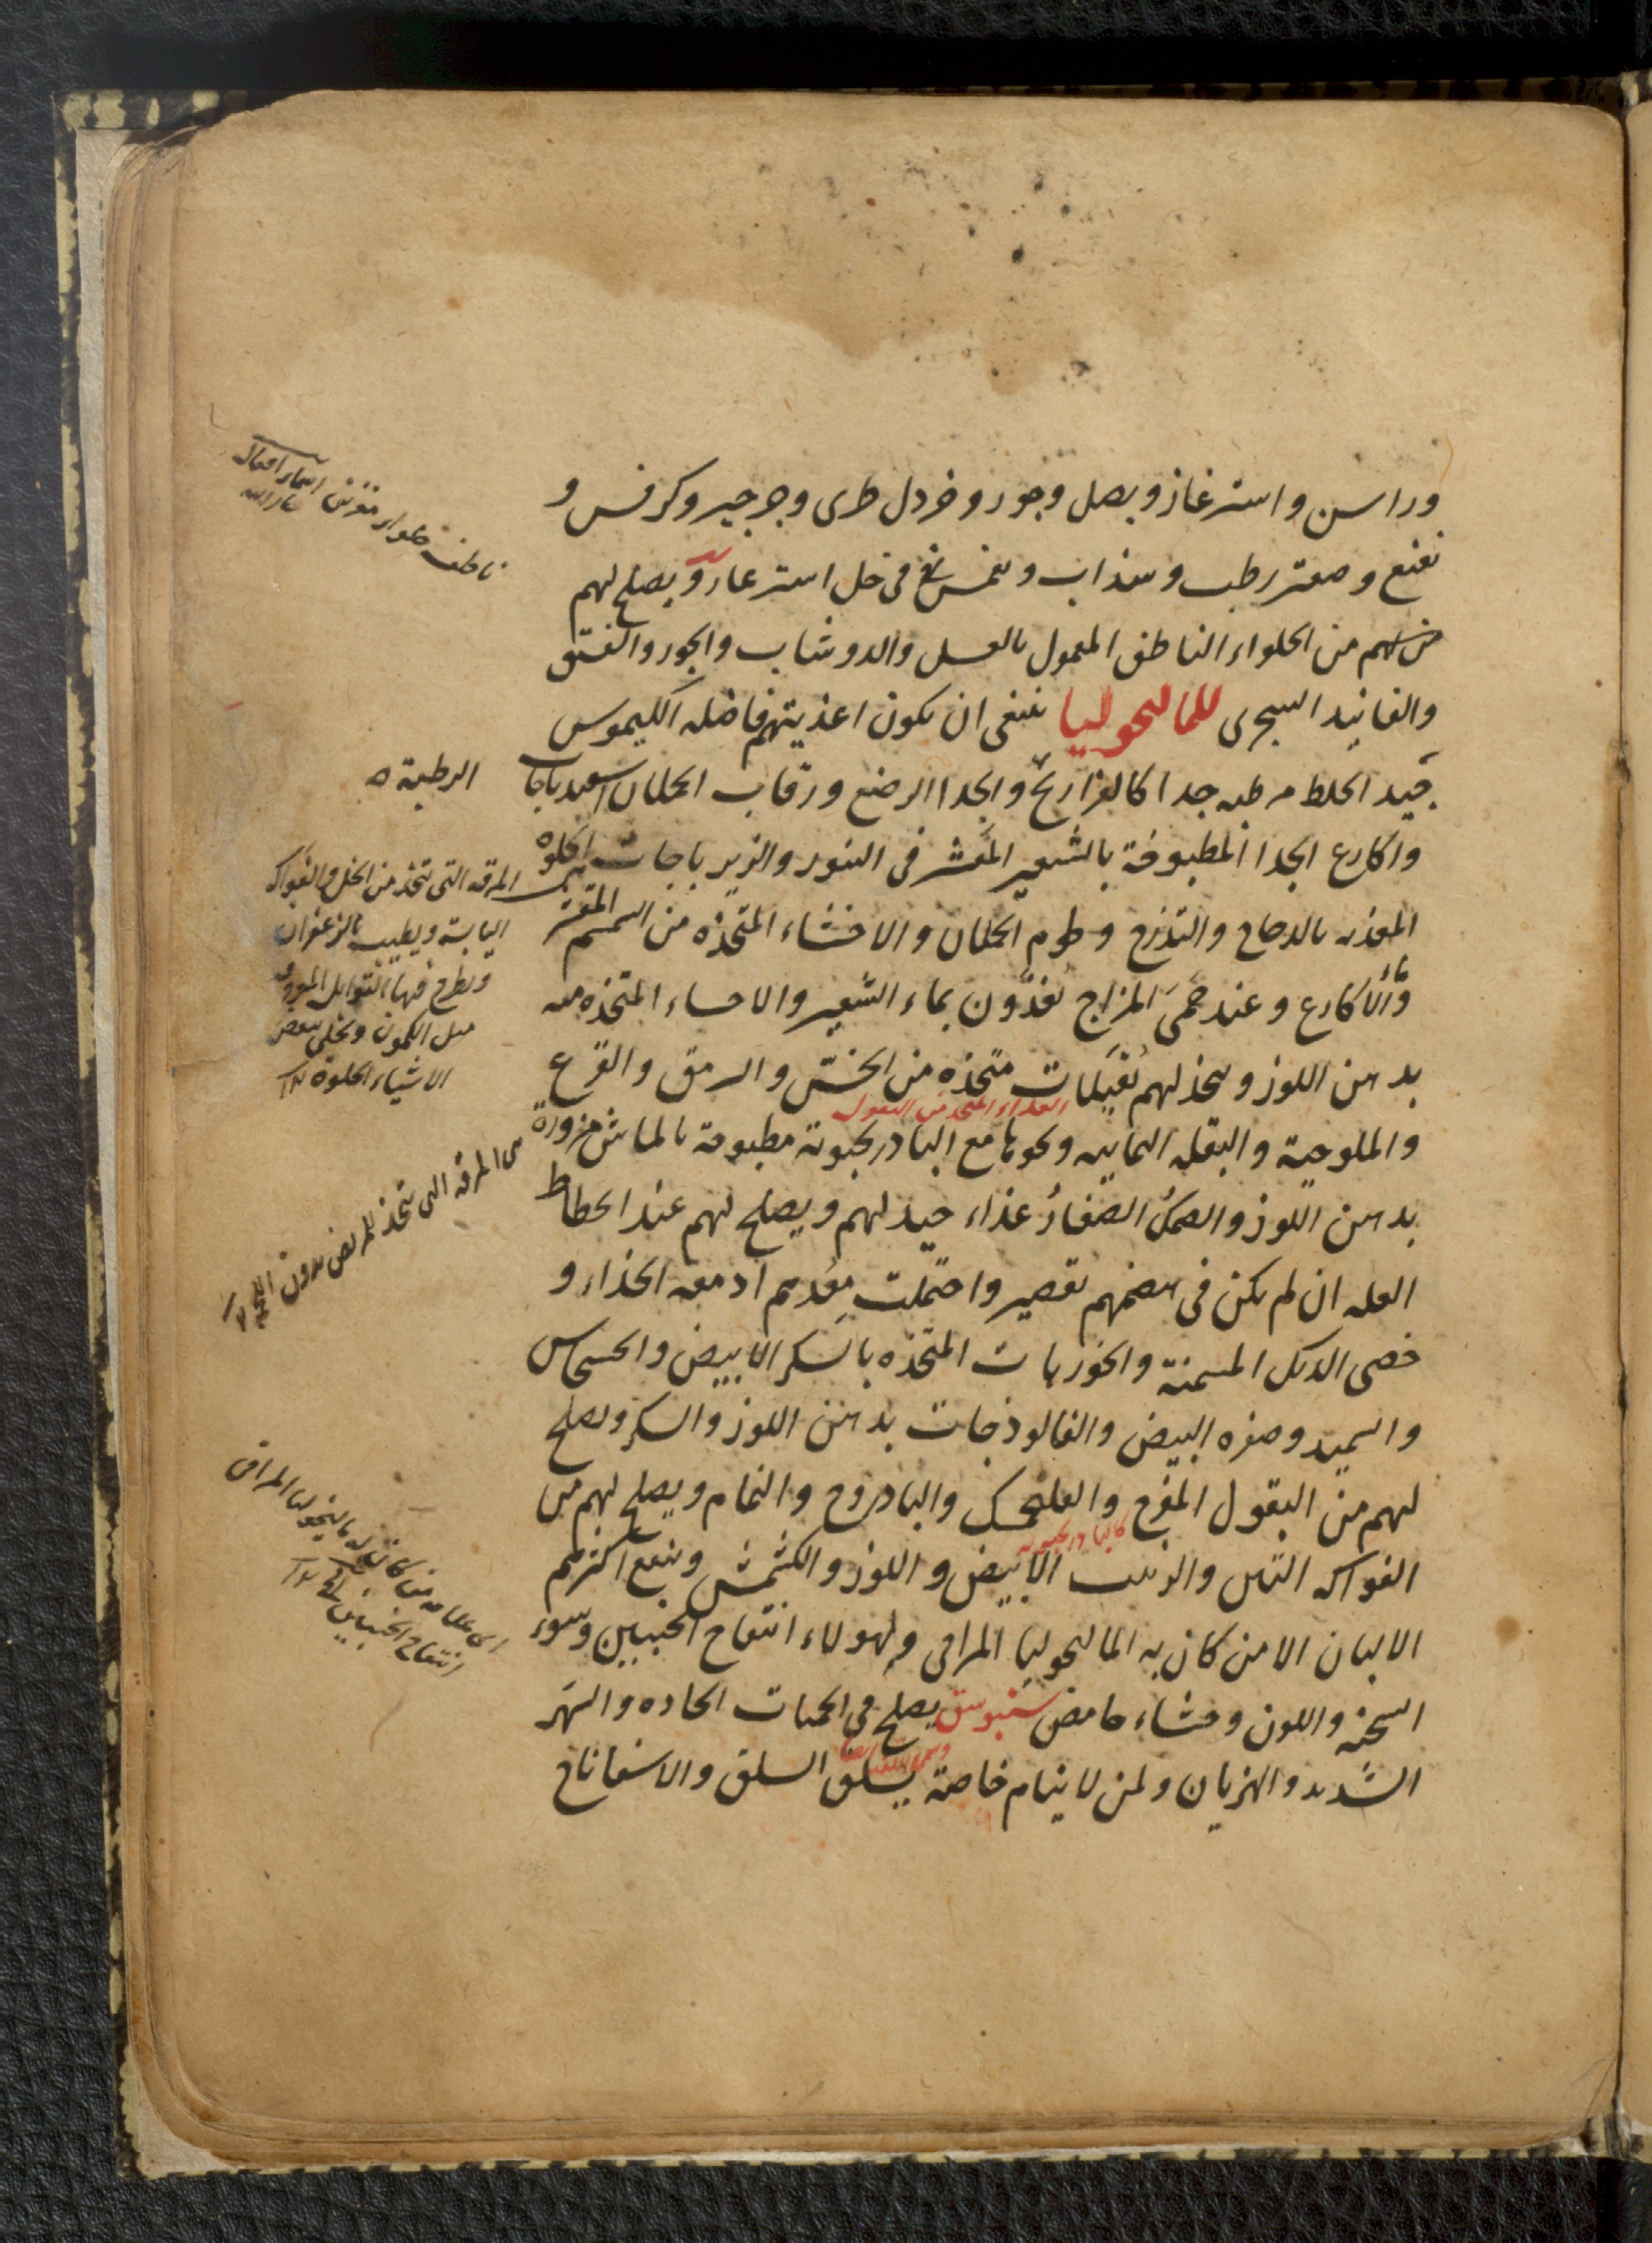 وراسن واسترغاز وبصل وجوز وخردل طرى وجرجير وكرفس و
نعنع وصعتر رطب وسذاب وينمس فى خل استرغاز ويصلح لهم
من الحلواء الناطف المعمول بالعسل والدوشاب والجوز والفستق
والفانيد السجرى للمالنحوليا ينبغى ان يكون اغذيتهم فاضله الكيموس
جيد الخلط مرطبه جدا كالفراريج والجدا الرضع ورقاب الحملان اسفيدباجات
واكارع الجدا المطبوخة بالشعير المقشر فى التنور والزيرباجات الحلوه
المغذيه بالدجاج والتذرج ولحوم الحملان والاخشاء المتخذه من السمسم المقشر
والاكارع وعند حمى المزاج يغذون بماء الشعير والاحساء المتخذه منه
بدهن اللوز ويتخذ لهم بقيلات متخذه من الخس والسرمق والقرع
والملوخية والبقله اليمانيه ونحوها مع البادرنجبونة مطبوخة بالماش مزورة
بدهن اللوز والسمك الصغار غذاء جيد لهم ويصلح لهم عند انحطاط
العله ان لم يكن فى هضمهم تقصير واحتملت معدهم ادمغه الجداء و
خصى الديك المسمنة والجوزيات المتخذه بالسكر الابيض والخشخاش
والسميد وصفره البيض والفالوذجات بدهن اللوز والسكر ويصلح
لهم من البقول المفرح والفلنجمك والبادروج والنمام ويصلح لهم من
الفواكه التين والزبيب الابيض واللوز والكشمش وينفع اكثرهم
الالبان الا من كان به المالنحوليا المراقى ولهولاء انتفاخ الجنبين وسوء
السحنه واللون وجشاء حامض سنبوسق يصلح فى الحميات الحاده والسهر
الشديد والهذيان ولمن لا ينام خاصة يسلق السلق والاسفاناخ
الرطبة
المرقه التى تتخذ من الخل والفواكه
اليابسة ويطيب بالزعفران
ويطرح فيها التوابل المعروفه
مثل الكمون ويحلى ببعض
الاشياء الحلوة ١٢
المرقه التى تتخذ للمريض بدون اللحم ١٢
كالبادرنجبويه
انتفاخ الجنبين ١٢